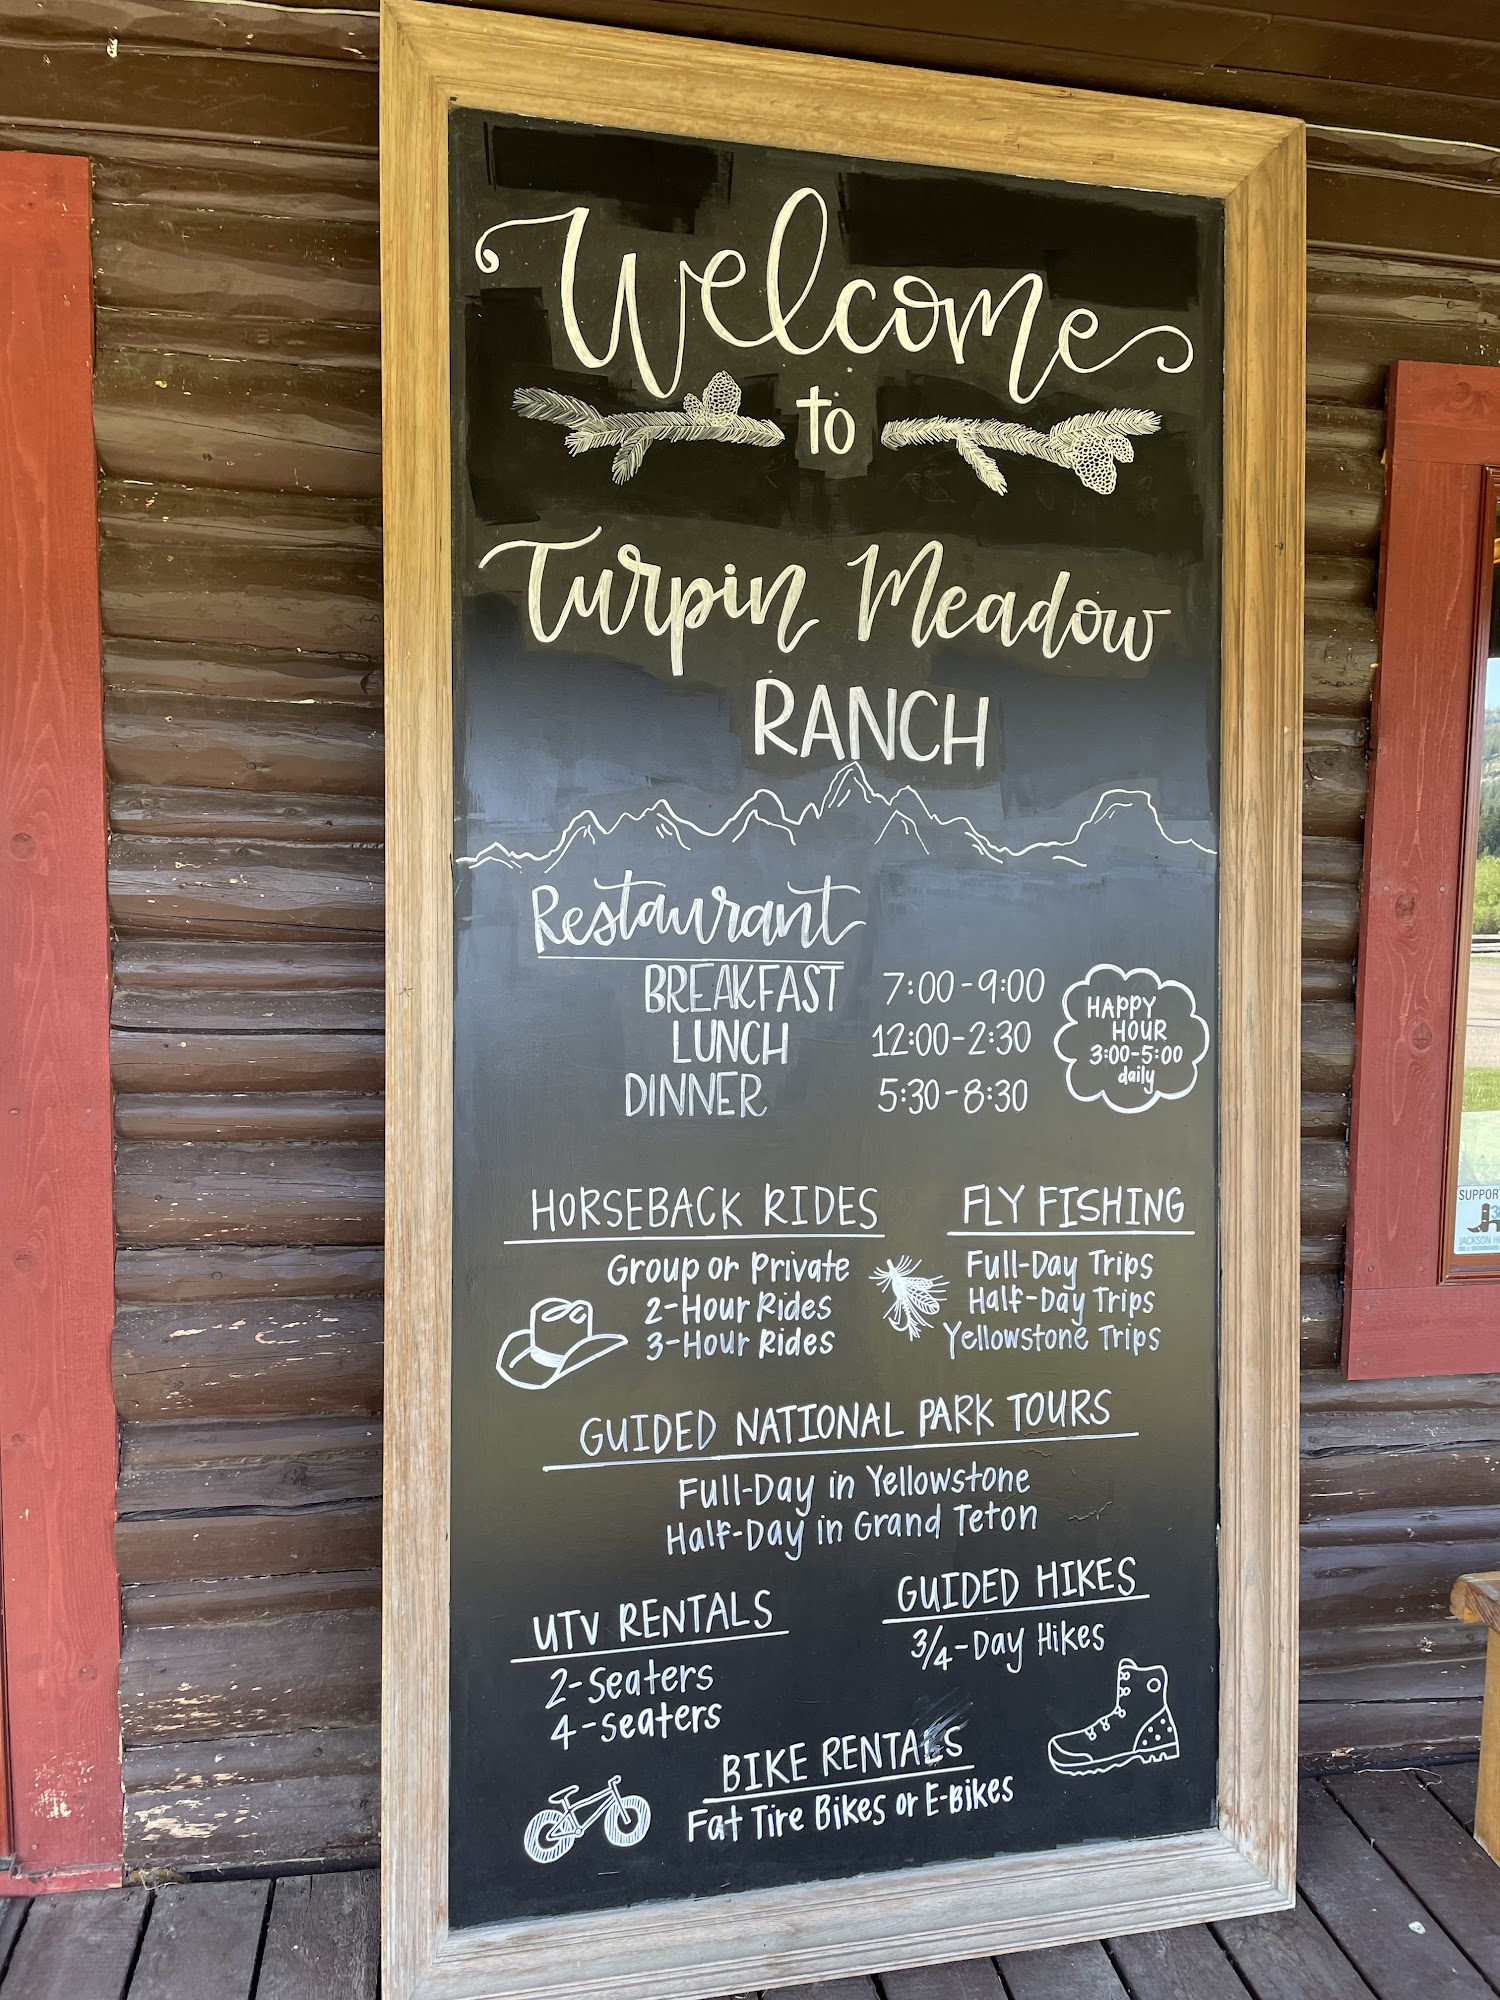 Welcome
to
Turpin Meadow
RANCH
Restaurant
BREAKFAST 7:00-9:00
LUNCH 12:00-2:30
DINNER 5:30-8:30
HAPPY
HOUR
3:00-5:00
daily
HORSEBACK RIDES
Group or Private
2-Hour Rides
3-Hour Rides
FLY FISHING
Full-Day Trips
Half-Day Trips
Yellowstone Trips
GUIDED NATIONAL PARK TOURS
Full-Day in Yellowstone
Half-Day in Grand Teton
UTV RENTALS
2-Seaters
4-Seaters
GUIDED HIKES
3/4-Day Hikes
BIKE RENTALS
Fat Tire Bikes or E-Bikes
SUPPOR
JACKSON H